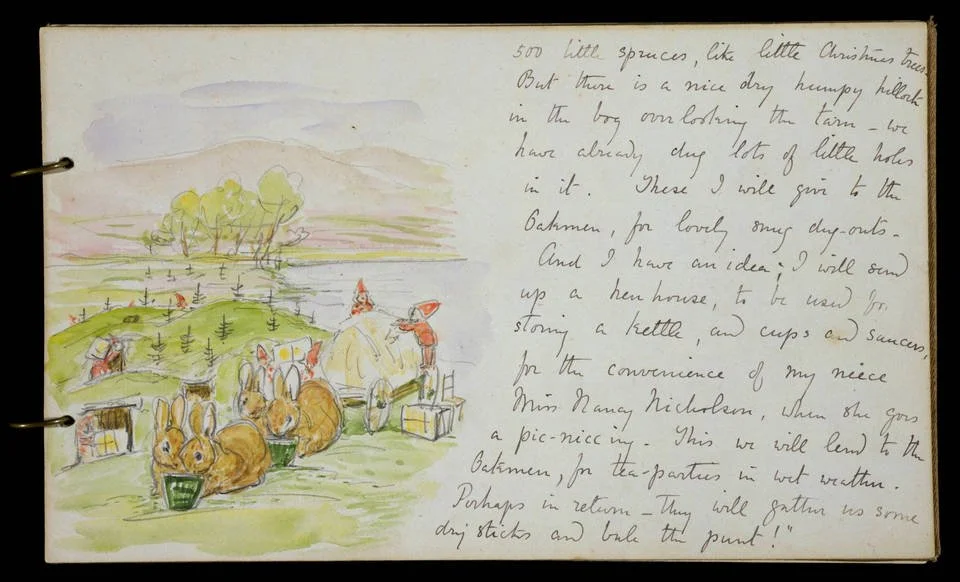 500 little spruces, like little Christmas trees.
But there is a nice dry humpy hillock
in the bog overlooking the tarn - we
have already dug lots of little holes
in it. These I will give to the
Oakmen, for lovely snug dug-outs -
And I have an idea; I will send
up a hen house, to be used for
storing a kettle, and cups and saucers,
for the convenience of my niece
Miss Nancy Nicholson, when she goes
a pic-niccing. This we will lend to the
Oakmen, for tea-parties in wet weather.
Perhaps in return - they will gather us some
dry sticks and bale the punt!"